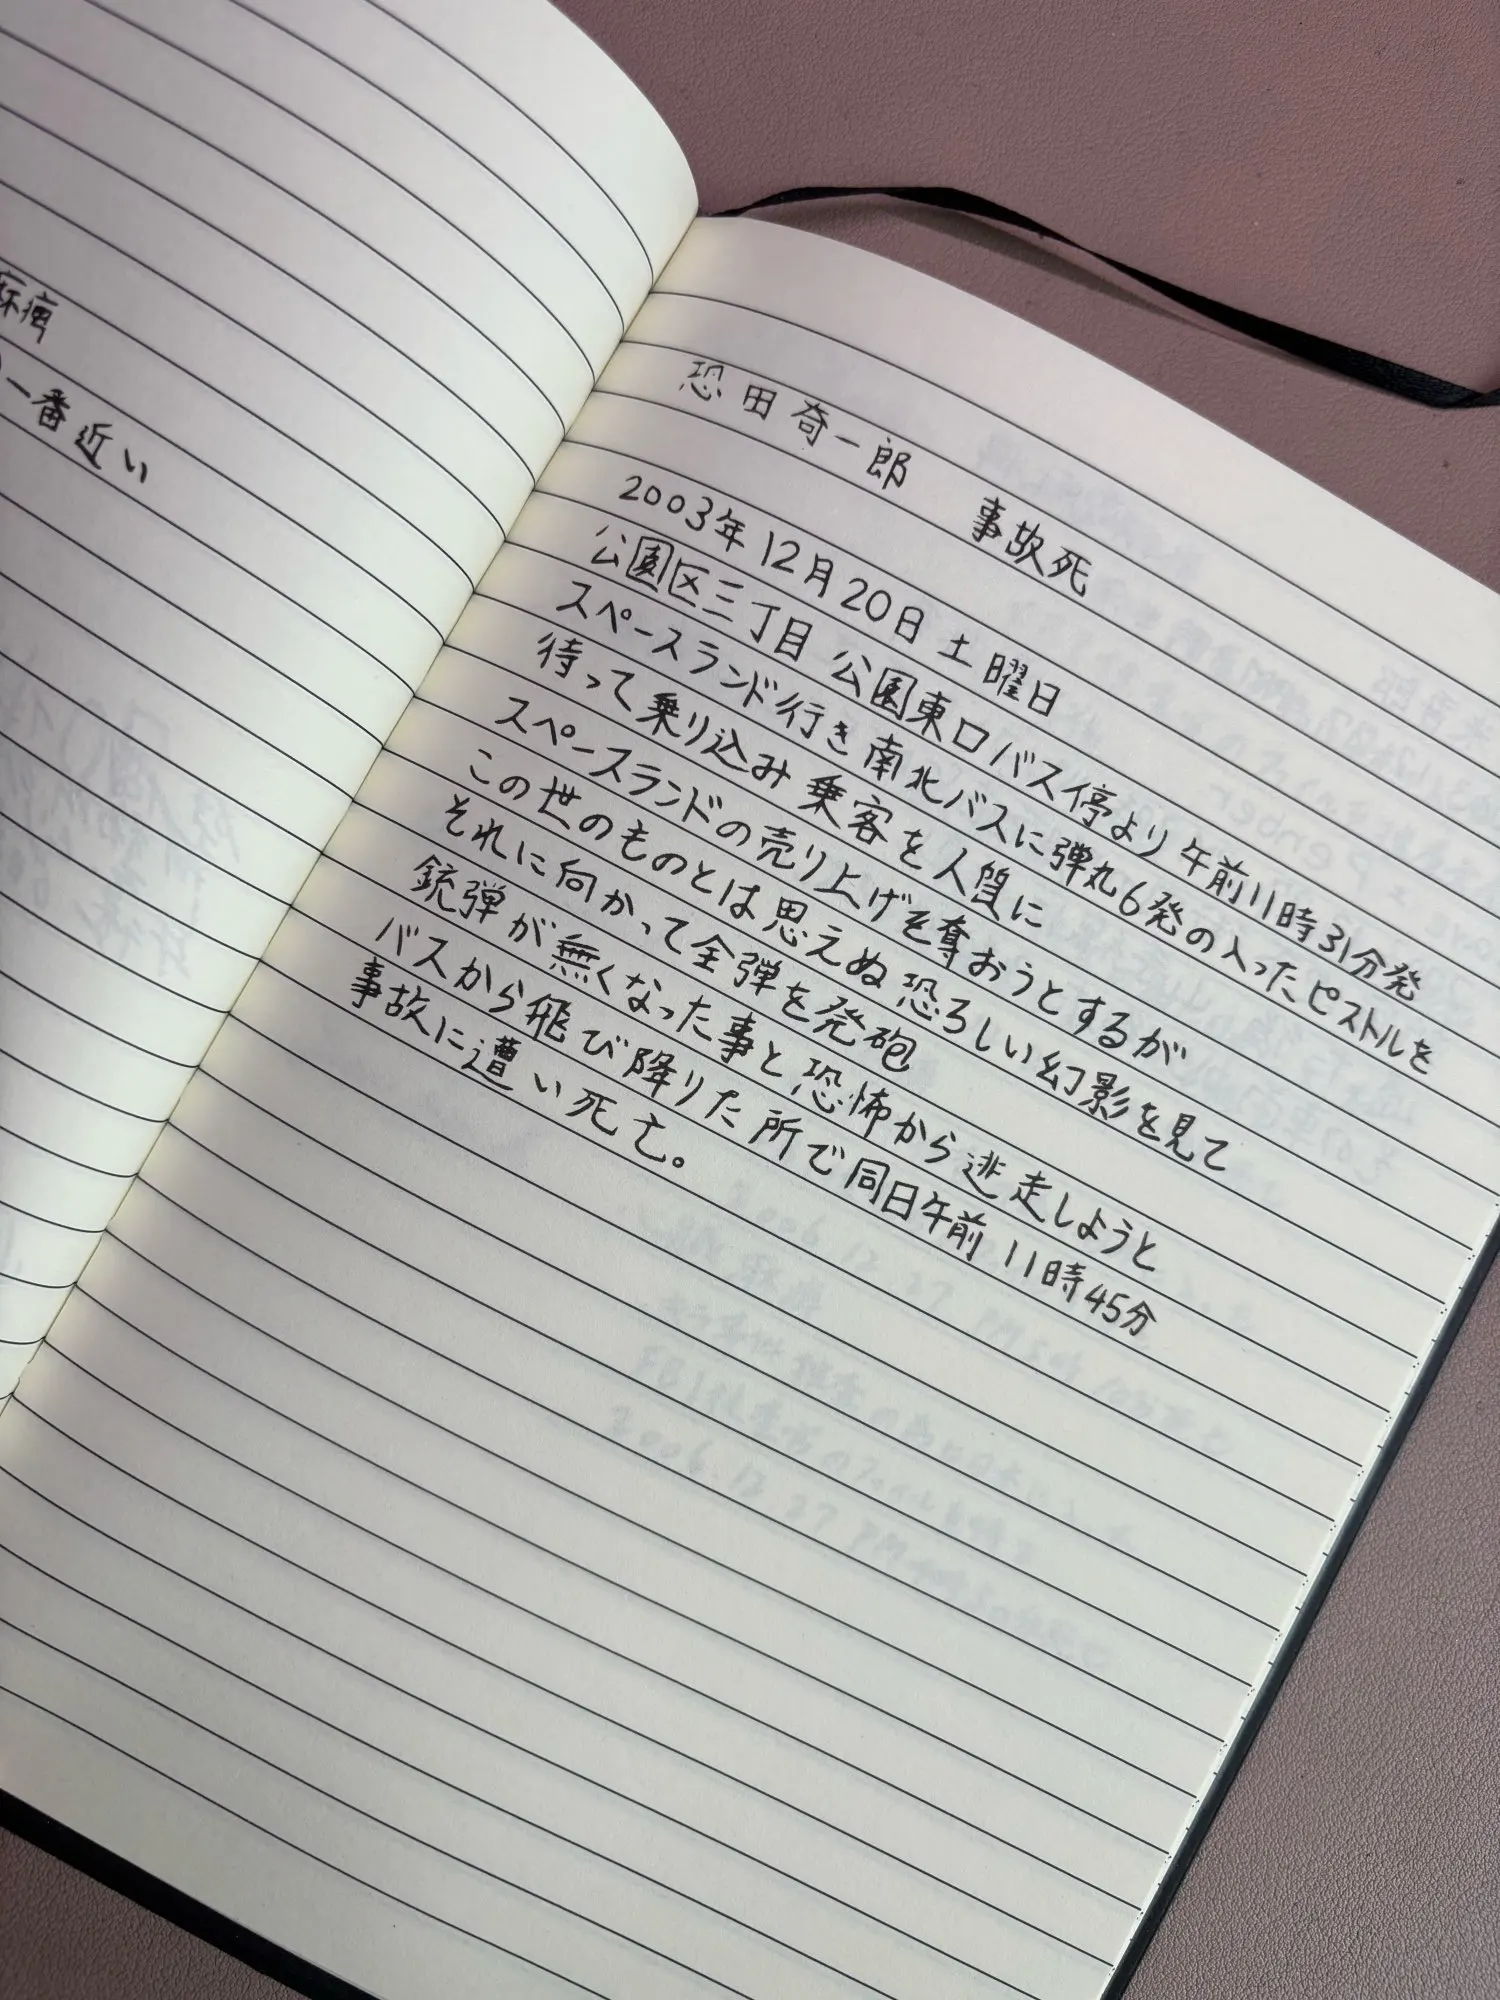 痳痺
一番近い
恐田奇一郎 事故死
2003年12月20日土曜日
公園区三丁目 公園東口バス停より午前11時31分発
スペースランド行き南北バスに弾丸6発の入ったピストルを
待って乗り込み乗客を人質に
スペースランドの売り上げを奪おうとするが
この世のものとは思えぬ恐ろしい幻影を見て
それに向かって全弾を発砲
銃弾が無くなった事と恐怖から逃走しようと
バスから飛び降りた所で同日午前11時45分
事故に遭い死亡。